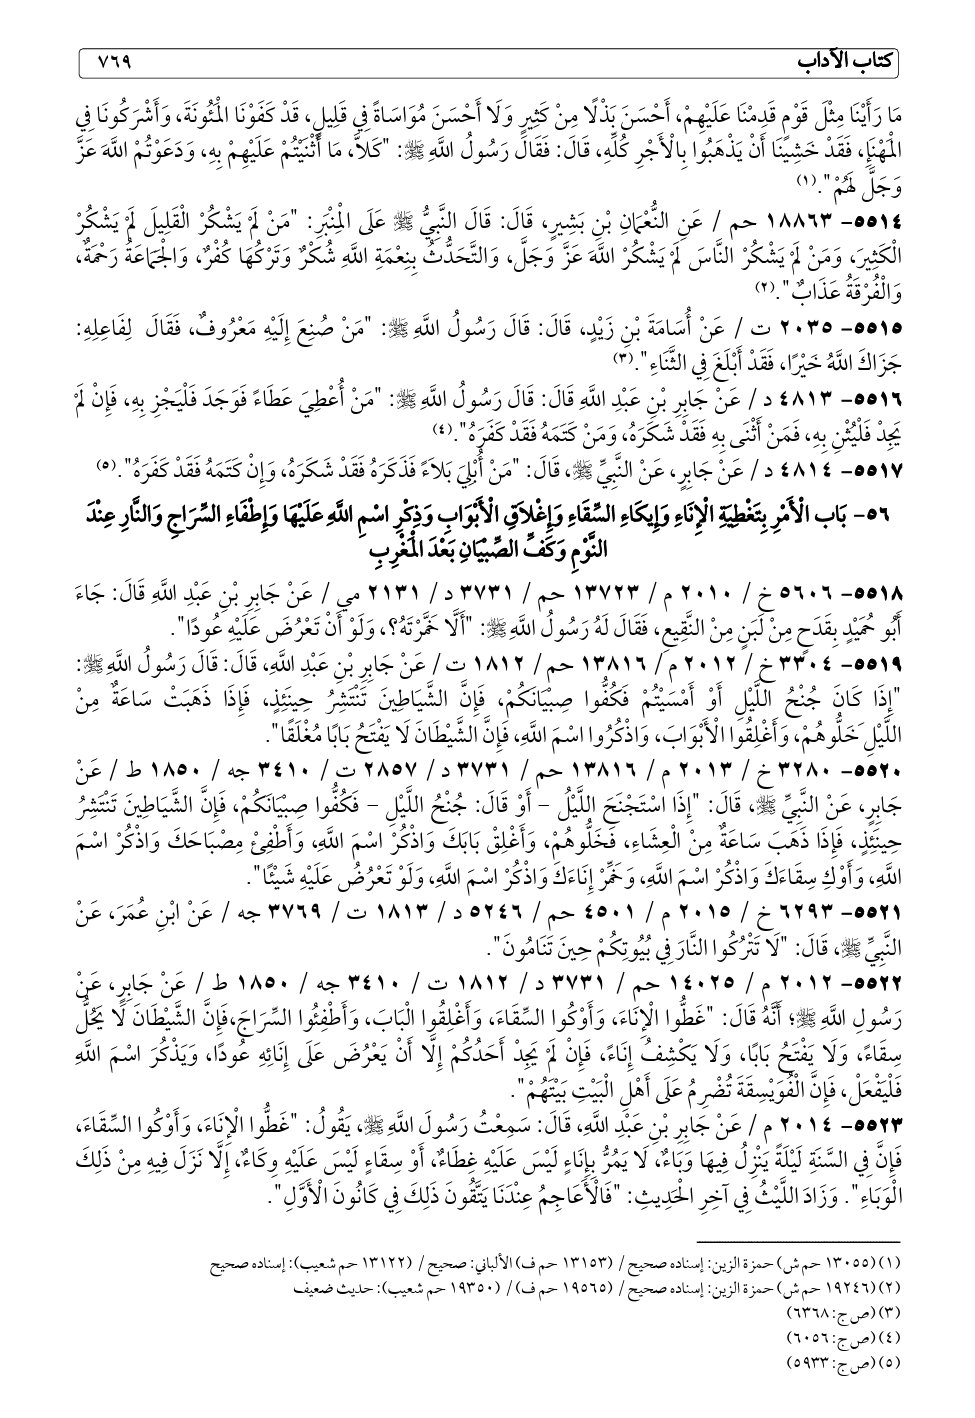 كتاب الآداب ٧٦٩
مَا رَأَيْنَا مِثْلَ قَوْمٍ قَدِمْنَا عَلَيْهِمْ، أَحْسَنَ بَذْلًا مِنْ كَثِيرٍ وَلَا أَحْسَنَ مُوَاسَاةً فِي قَلِيلٍ، قَدْ كَفَوْنَا الْمُئُونَةَ، وَأَشْرَكُونَا فِي
الْمَهْنَإِ، فَقَدْ خَشِينَا أَنْ يَذْهَبُوا بِالْأَجْرِ كُلِّهِ، قَالَ: فَقَالَ رَسُولُ اللهِ ﷺ: "كَلاَّ، مَا أَثْنَيْتُمْ عَلَيْهِمْ بِهِ، وَدَعَوْتُمْ اللهَ عَزَّ
وَجَلَّ لَهُمْ".(١)
٥٥١٤- ١٨٨٦٣ حم / عَنِ النُّعْمَانِ بْنِ بَشِيرٍ، قَالَ: قَالَ النَّبِيُّ ﷺ عَلَى الْمِنْبَرِ: "مَنْ لَمْ يَشْكُرْ الْقَلِيلَ لَمْ يَشْكُرْ
الْكَثِيرَ، وَمَنْ لَمْ يَشْكُرْ النَّاسَ لَمْ يَشْكُرْ اللهَ عَزَّ وَجَلَّ، وَالتَّحَدُّثُ بِنِعْمَةِ اللهِ شُكْرٌ وَتَرْكُهَا كُفْرٌ، وَالْجَمَاعَةُ رَحْمَةٌ،
وَالْفُرْقَةُ عَذَابٌ".(٢)
٥٥١٥- ٢٠٣٥ ت / عَنْ أُسَامَةَ بْنِ زَيْدٍ، قَالَ: قَالَ رَسُولُ اللهِ ﷺ: "مَنْ صُنِعَ إِلَيْهِ مَعْرُوفٌ، فَقَالَ لِفَاعِلِهِ:
جَزَاكَ اللهُ خَيْرًا، فَقَدْ أَبْلَغَ فِي الثَّنَاءِ".(٣)
٥٥١٦- ٤٨١٣ د / عَنْ جَابِرِ بْنِ عَبْدِ اللهِ قَالَ: قَالَ رَسُولُ اللهِ ﷺ: "مَنْ أُعْطِيَ عَطَاءً فَوَجَدَ فَلْيَجْزِ بِهِ، فَإِنْ لَمْ
يَجِدْ فَلْيُثْنِ بِهِ، فَمَنْ أَثْنَى بِهِ فَقَدْ شَكَرَهُ، وَمَنْ كَتَمَهُ فَقَدْ كَفَرَهُ".(٤)
٥٥١٧- ٤٨١٤ د / عَنْ جَابِرٍ، عَنْ النَّبِيِّ ﷺ، قَالَ: "مَنْ أُبْلِيَ بَلاَءً فَذَكَرَهُ فَقَدْ شَكَرَهُ، وَإِنْ كَتَمَهُ فَقَدْ كَفَرَهُ".(٥)
٥٦- بَاب الْأَمْرِ بِتَغْطِيَةِ الْإِنَاءِ وَإِيكَاءِ السِّقَاءِ وَإِغْلَاقِ الْأَبْوَابِ وَذِكْرِ اسْمِ اللهِ عَلَيْهَا وَإِطْفَاءِ السِّرَاجِ وَالنَّارِ عِنْدَ
النَّوْمِ وَكَفِّ الصِّبْيَانِ بَعْدَ الْمَغْرِبِ
٥٥١٨- ٥٦٠٦ خ / ٢٠١٠ م / ١٣٧٢٣ حم / ٣٧٣١ د / ٢١٣١ مي / عَنْ جَابِرِ بْنِ عَبْدِ اللهِ قَالَ: جَاءَ
أَبُو حُمَيْدٍ بِقَدَحٍ مِنْ لَبَنٍ مِنْ النَّقِيعِ، فَقَالَ لَهُ رَسُولُ اللهِ ﷺ: "أَلَّا خَمَّرْتَهُ؟، وَلَوْ أَنْ تَعْرُضَ عَلَيْهِ عُودًا".
٥٥١٩- ٣٣٠٤ خ / ٢٠١٢ م / ١٣٨١٦ حم / ١٨١٢ ت / عَنْ جَابِرِ بْنِ عَبْدِ اللهِ، قَالَ: قَالَ رَسُولُ اللهِ ﷺ:
"إِذَا كَانَ جُنْحُ اللَّيْلِ أَوْ أَمْسَيْتُمْ فَكُفُّوا صِبْيَانَكُمْ، فَإِنَّ الشَّيَاطِينَ تَنْتَشِرُ حِينَئِذٍ، فَإِذَا ذَهَبَتْ سَاعَةٌ مِنْ
اللَّيْلِ خَلُّوهُمْ، وَأَغْلِقُوا الْأَبْوَابَ، وَاذْكُرُوا اسْمَ اللهِ، فَإِنَّ الشَّيْطَانَ لَا يَفْتَحُ بَابًا مُغْلَقًا".
٥٥٢٠- ٣٢٨٠ خ / ٢٠١٣ م / ١٣٨١٦ حم / ٣٧٣١ د / ٢٨٥٧ ت / ٣٤١٠ جه / ١٨٥٠ ط / عَنْ
جَابِرٍ، عَنْ النَّبِيِّ ﷺ، قَالَ: "إِذَا اسْتَجْنَحَ اللَّيْلُ – أَوْ قَالَ: جُنْحُ اللَّيْلِ – فَكُفُّوا صِبْيَانَكُمْ، فَإِنَّ الشَّيَاطِينَ تَنْتَشِرُ
حِينَئِذٍ، فَإِذَا ذَهَبَ سَاعَةٌ مِنْ الْعِشَاءِ، فَخَلُّوهُمْ، وَأَغْلِقْ بَابَكَ وَاذْكُرْ اسْمَ اللهِ، وَأَطْفِئْ مِصْبَاحَكَ وَاذْكُرْ اسْمَ
اللهِ، وَأَوْكِ سِقَاءَكَ وَاذْكُرْ اسْمَ اللهِ، وَخَمِّرْ إِنَاءَكَ وَاذْكُرْ اسْمَ اللهِ، وَلَوْ تَعْرُضُ عَلَيْهِ شَيْئًا".
٥٥٢١- ٦٢٩٣ خ / ٢٠١٥ م / ٤٥٠١ حم / ٥٢٤٦ د / ١٨١٣ ت / ٣٧٦٩ جه / عَنْ ابْنِ عُمَرَ، عَنْ
النَّبِيِّ ﷺ، قَالَ: "لَا تَتْرُكُوا النَّارَ فِي بُيُوتِكُمْ حِينَ تَنَامُونَ".
٥٥٢٢- ٢٠١٢ م / ١٤٠٢٥ حم / ٣٧٣١ د / ١٨١٢ ت / ٣٤١٠ جه / ١٨٥٠ ط / عَنْ جَابِرٍ، عَنْ
رَسُولِ اللهِ ﷺ؛ أَنَّهُ قَالَ: "غَطُّوا الْإِنَاءَ، وَأَوْكُوا السِّقَاءَ، وَأَغْلِقُوا الْبَابَ، وَأَطْفِئُوا السِّرَاجَ،فَإِنَّ الشَّيْطَانَ لَا يَحُلُّ
سِقَاءً، وَلَا يَفْتَحُ بَابًا، وَلَا يَكْشِفُ إِنَاءً، فَإِنْ لَمْ يَجِدْ أَحَدُكُمْ إِلَّا أَنْ يَعْرُضَ عَلَى إِنَائِهِ عُودًا، وَيَذْكُرَ اسْمَ اللهِ
فَلْيَفْعَلْ، فَإِنَّ الْفُوَيْسِقَةَ تُضْرِمُ عَلَى أَهْلِ الْبَيْتِ بَيْتَهُمْ".
٥٥٢٣- ٢٠١٤ م / عَنْ جَابِرِ بْنِ عَبْدِ اللهِ، قَالَ: سَمِعْتُ رَسُولَ اللهِ ﷺ، يَقُولُ: "غَطُّوا الْإِنَاءَ، وَأَوْكُوا السِّقَاءَ،
فَإِنَّ فِي السَّنَةِ لَيْلَةً يَنْزِلُ فِيهَا وَبَاءٌ، لَا يَمُرُّ بِإِنَاءٍ لَيْسَ عَلَيْهِ غِطَاءٌ، أَوْ سِقَاءٍ لَيْسَ عَلَيْهِ وِكَاءٌ، إِلَّا نَزَلَ فِيهِ مِنْ ذَلِكَ
الْوَبَاءِ". وَزَادَ اللَّيْثُ فِي آخِرِ الْحَدِيثِ: "فَالْأَعَاجِمُ عِنْدَنَا يَتَّقُونَ ذَلِكَ فِي كَانُونَ الْأَوَّلِ".
(١) (١٣٠٥٥ حم ش) حمزة الزين: إسناده صحيح / (١٣١٥٣ حم ف) الألباني: صحيح / (١٣١٢٢ حم شعيب): إسناده صحيح
(٢) (١٩٢٤٦ حم ش) حمزة الزين: إسناده صحيح / (١٩٥٦٥ حم ف)/ (١٩٣٥٠ حم شعيب): حديث ضعيف
(٣) (ص ج: ٦٣٦٨)
(٤) (ص ج: ٦٠٥٦)
(٥) (ص ج: ٥٩٣٣)